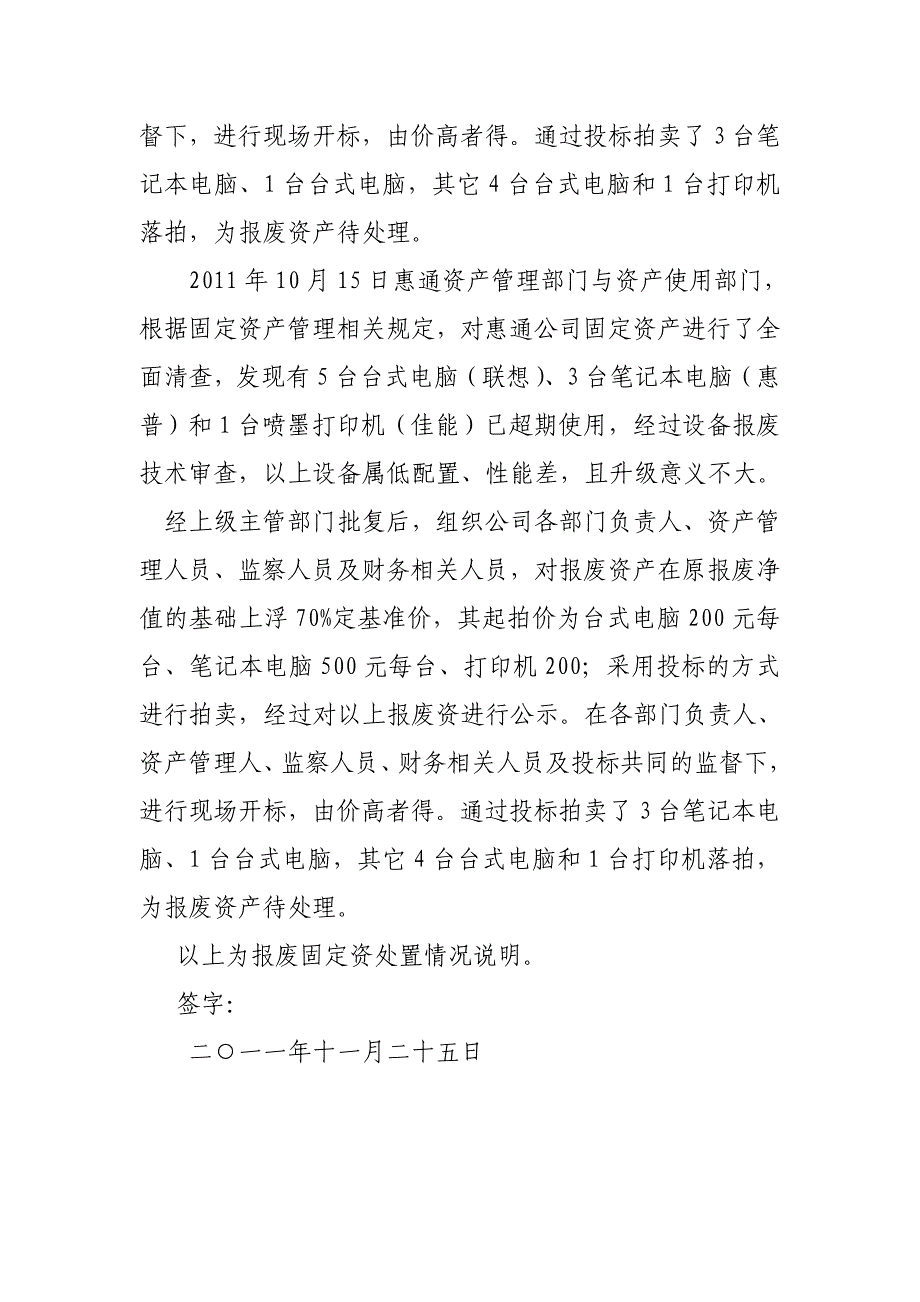 督下，进行现场开标，由价高者得。通过投标拍卖了 3 台笔
记本电脑、1 台台式电脑，其它 4 台台式电脑和 1 台打印机
落拍，为报废资产待处理。
2011 年 10 月 15 日惠通资产管理部门与资产使用部门，
根据固定资产管理相关规定，对惠通公司固定资产进行了全
面清查，发现有 5 台台式电脑（联想）、3 台笔记本电脑（惠
普）和 1 台喷墨打印机（佳能）已超期使用，经过设备报废
技术审查，以上设备属低配置、性能差，且升级意义不大。
经上级主管部门批复后，组织公司各部门负责人、资产管
理人员、监察人员及财务相关人员，对报废资产在原报废净
值的基础上浮 70%定基准价，其起拍价为台式电脑 200 元每
台、笔记本电脑 500 元每台、打印机 200；采用投标的方式
进行拍卖，经过对以上报废资进行公示。在各部门负责人、
资产管理人、监察人员、财务相关人员及投标共同的监督下，
进行现场开标，由价高者得。通过投标拍卖了 3 台笔记本电
脑、1 台台式电脑，其它 4 台台式电脑和 1 台打印机落拍，
为报废资产待处理。
以上为报废固定资处置情况说明。
签字：
二〇一一年十一月二十五日